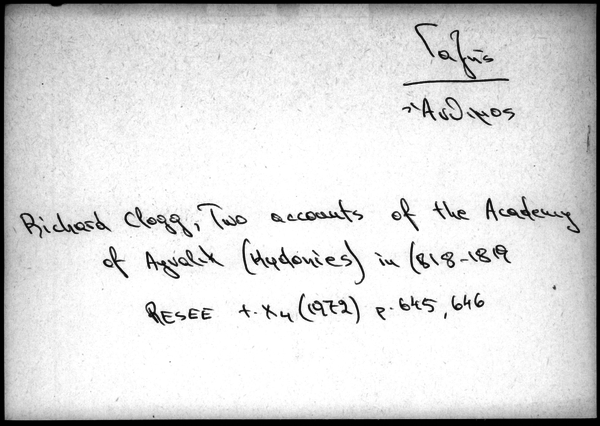 Γαζής
Ἄνθιμος
Richard Clogg, Two accounts of the Academy
of Ayvalik (Kydonies) in 1818-1819
RESEE t. X4 (1972) p. 645, 646